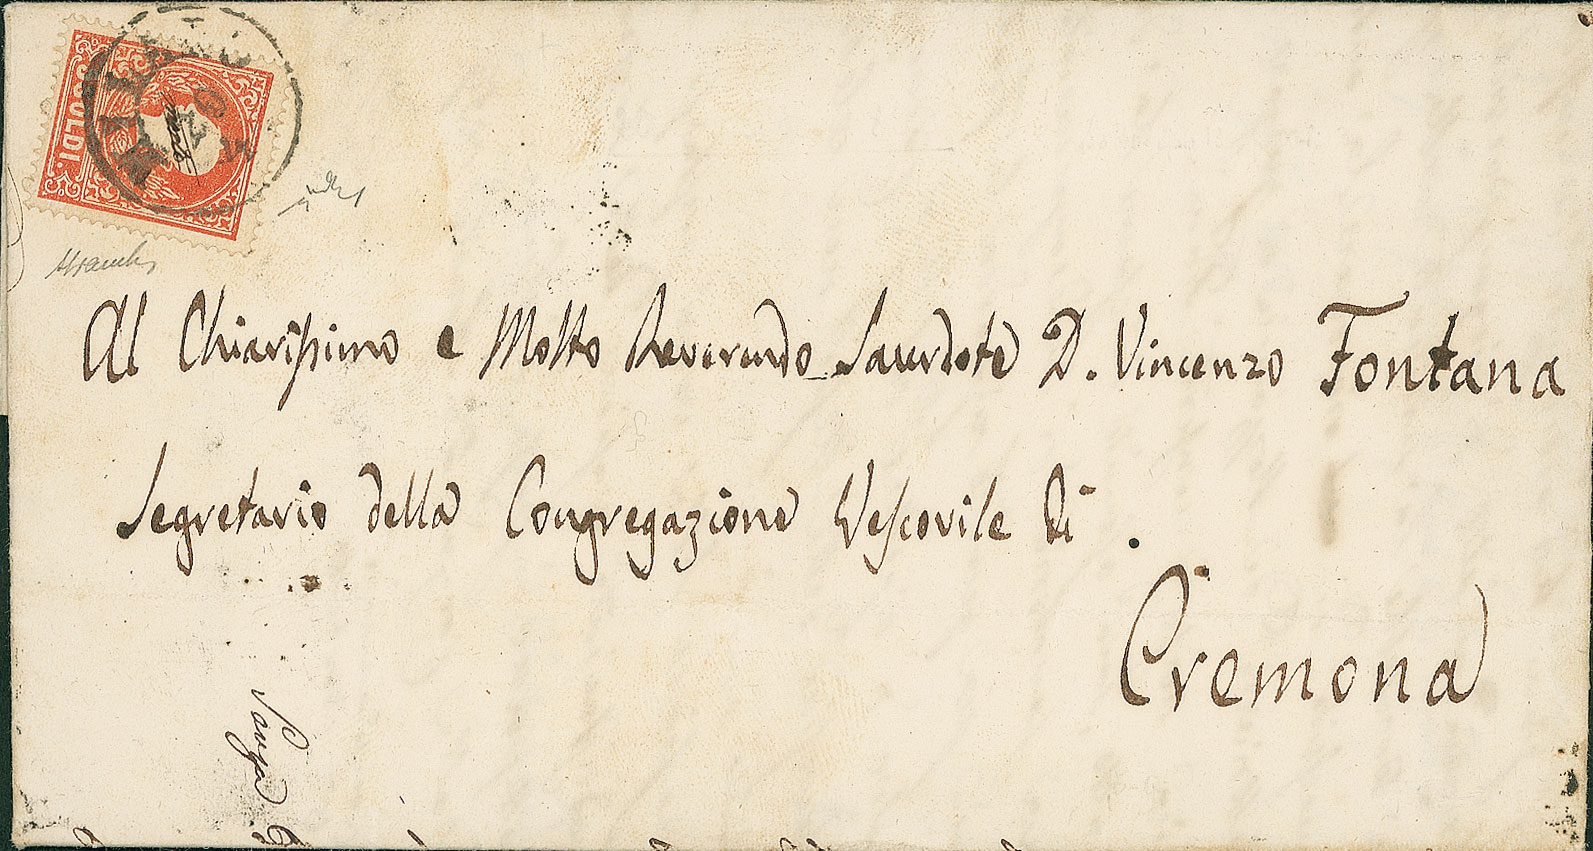 5 SOLDI.
MILANO
Al Chiarissimo e Molto Reverendo Sacerdote D. Vincenzo Fontana
Segretario della Congregazione Vescovile di .
Cremona